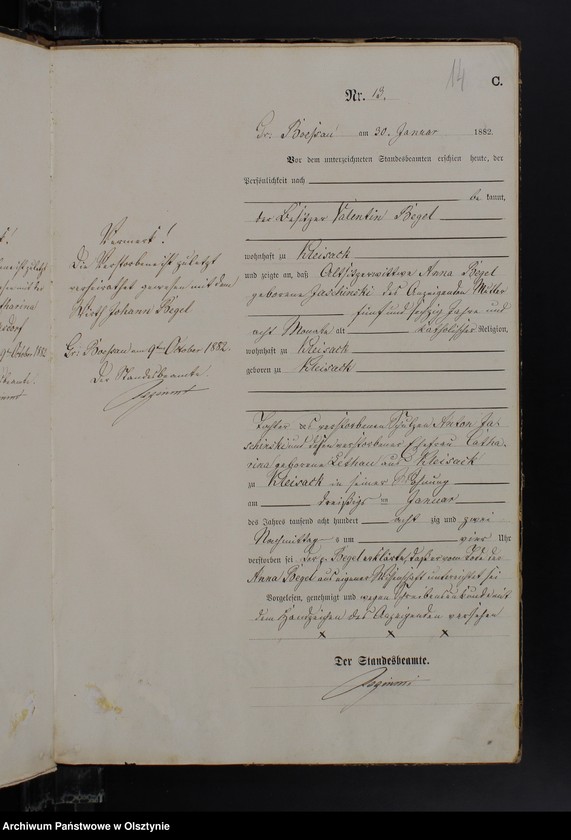 14
C.
Nr. 13.
Gr. Boessau am 30. Januar 1882.
Vor dem unterzeichneten Standesbeamten erschien heute, der
Persönlichkeit nach
be kannt,
der Besitzer Valentin Begel
wohnhaft zu Kleisack
und zeigte an, daß Altsitzerwittwe Anna Begel
geborene Jaschinski des Anzeigenden Mutter
fünf und sechzig Jahre und
acht Monate alt katholischer Religion,
wohnhaft zu Kleisack
geboren zu Kleisack
Tochter des verstorbenen Anton Ja-
schinski und dessen verstorbener Ehefrau Catha-
rina geborene aus Kleisack
zu Kleisack in seiner Wohnung
am dreißigs ten Januar
des Jahres tausend acht hundert acht zig und zwei
Nachmittag s um vier Uhr
verstorben sei Der p. Begel erklärte daß er vom Tode der
Anna Begel aus eigener Wissenschaft unterrichtet sei
Vorgelesen, genehmigt und wegen Schreibensunkunde mit
dem Handzeichen des Anzeigenden versehen
x x x
Der Standesbeamte.
Vermerk!
Die Verstorbene ist zuletzt
verheirathet gewesen mit dem
Wirth Johann Begel
Gr: Boessau am 9ten Oktober 1882.
Der Standesbeamte.
Archiwum Państwowe w Olsztynie